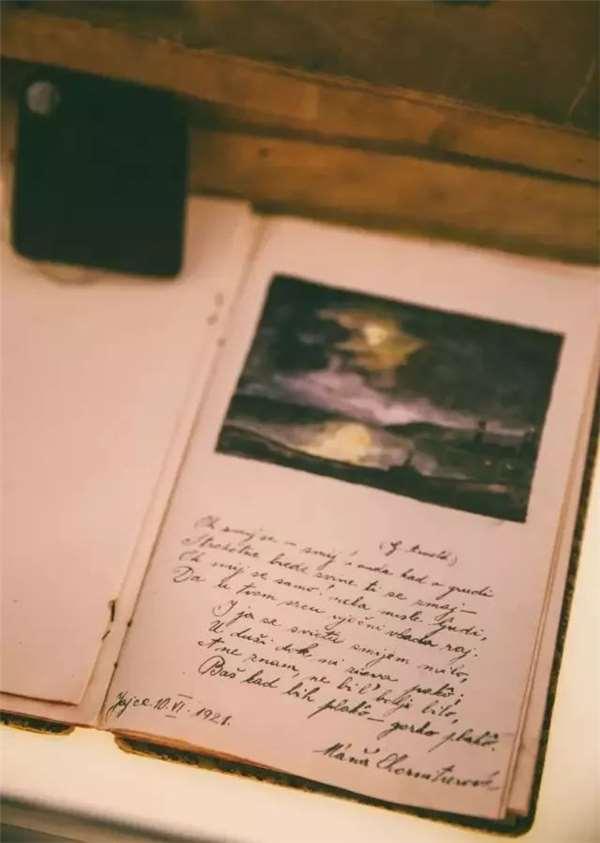 (G. Arnold)
Oh smij se – smij i onda kad u grudi
Strahotne bjede svine ti se zmaj –
Oh smij se samo! neka misle ljudi,
Da u tvom srcu vječni vlada raj.
I ja se svietu smijem milo,
U duši dok mi plakô!
A ne znam, ne bi l' bolje bilo,
Baš kad bih plakô – gorko plakô.
Jajce 10. VI. 1921.
Máňa